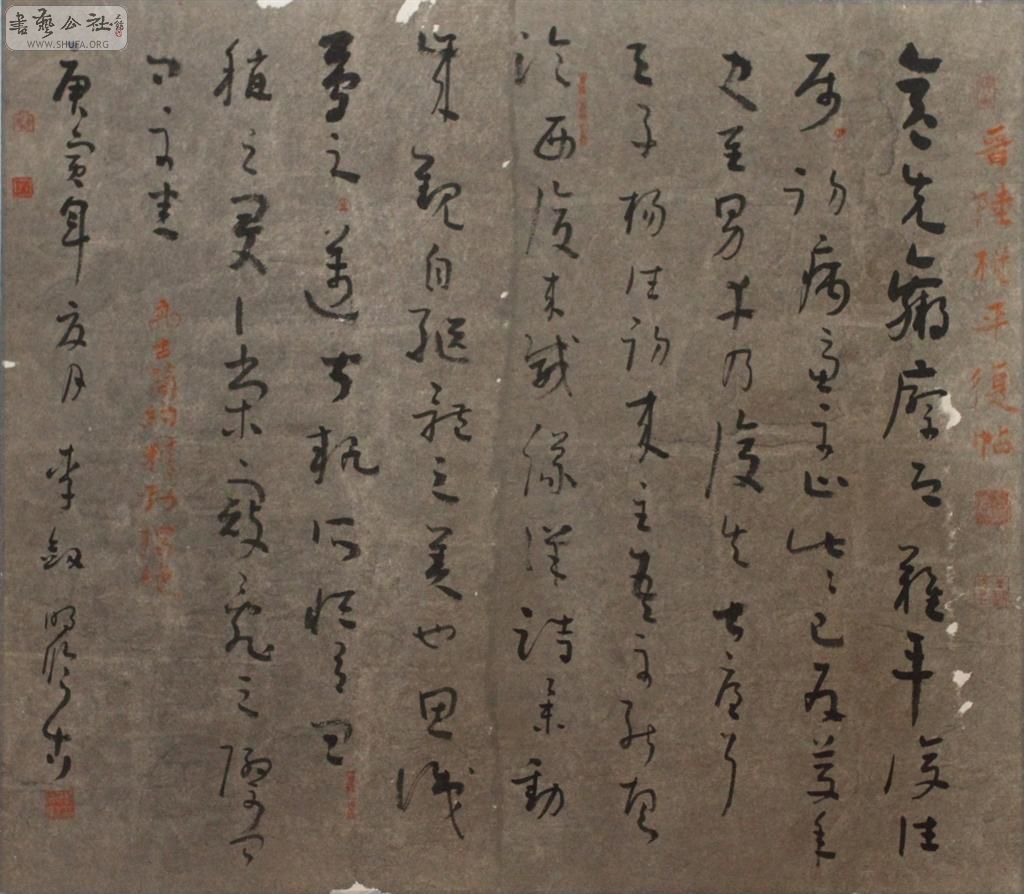 書藝公社
WWW.SHUFA.ORG
晉陸機平復帖
彦先羸瘵恐難平復往
屬初病慮不止此〻已為慶承
使至男幸乃復失前憂耳
吴子楊往初来主吾不能盡
臨西復来威儀詳跱舉動
成觀自軀體之美也思識
量之邁前執所恒有宜
稱之夏伯榮寇亂之際聞
問不悉
庚寅年夏月李劍